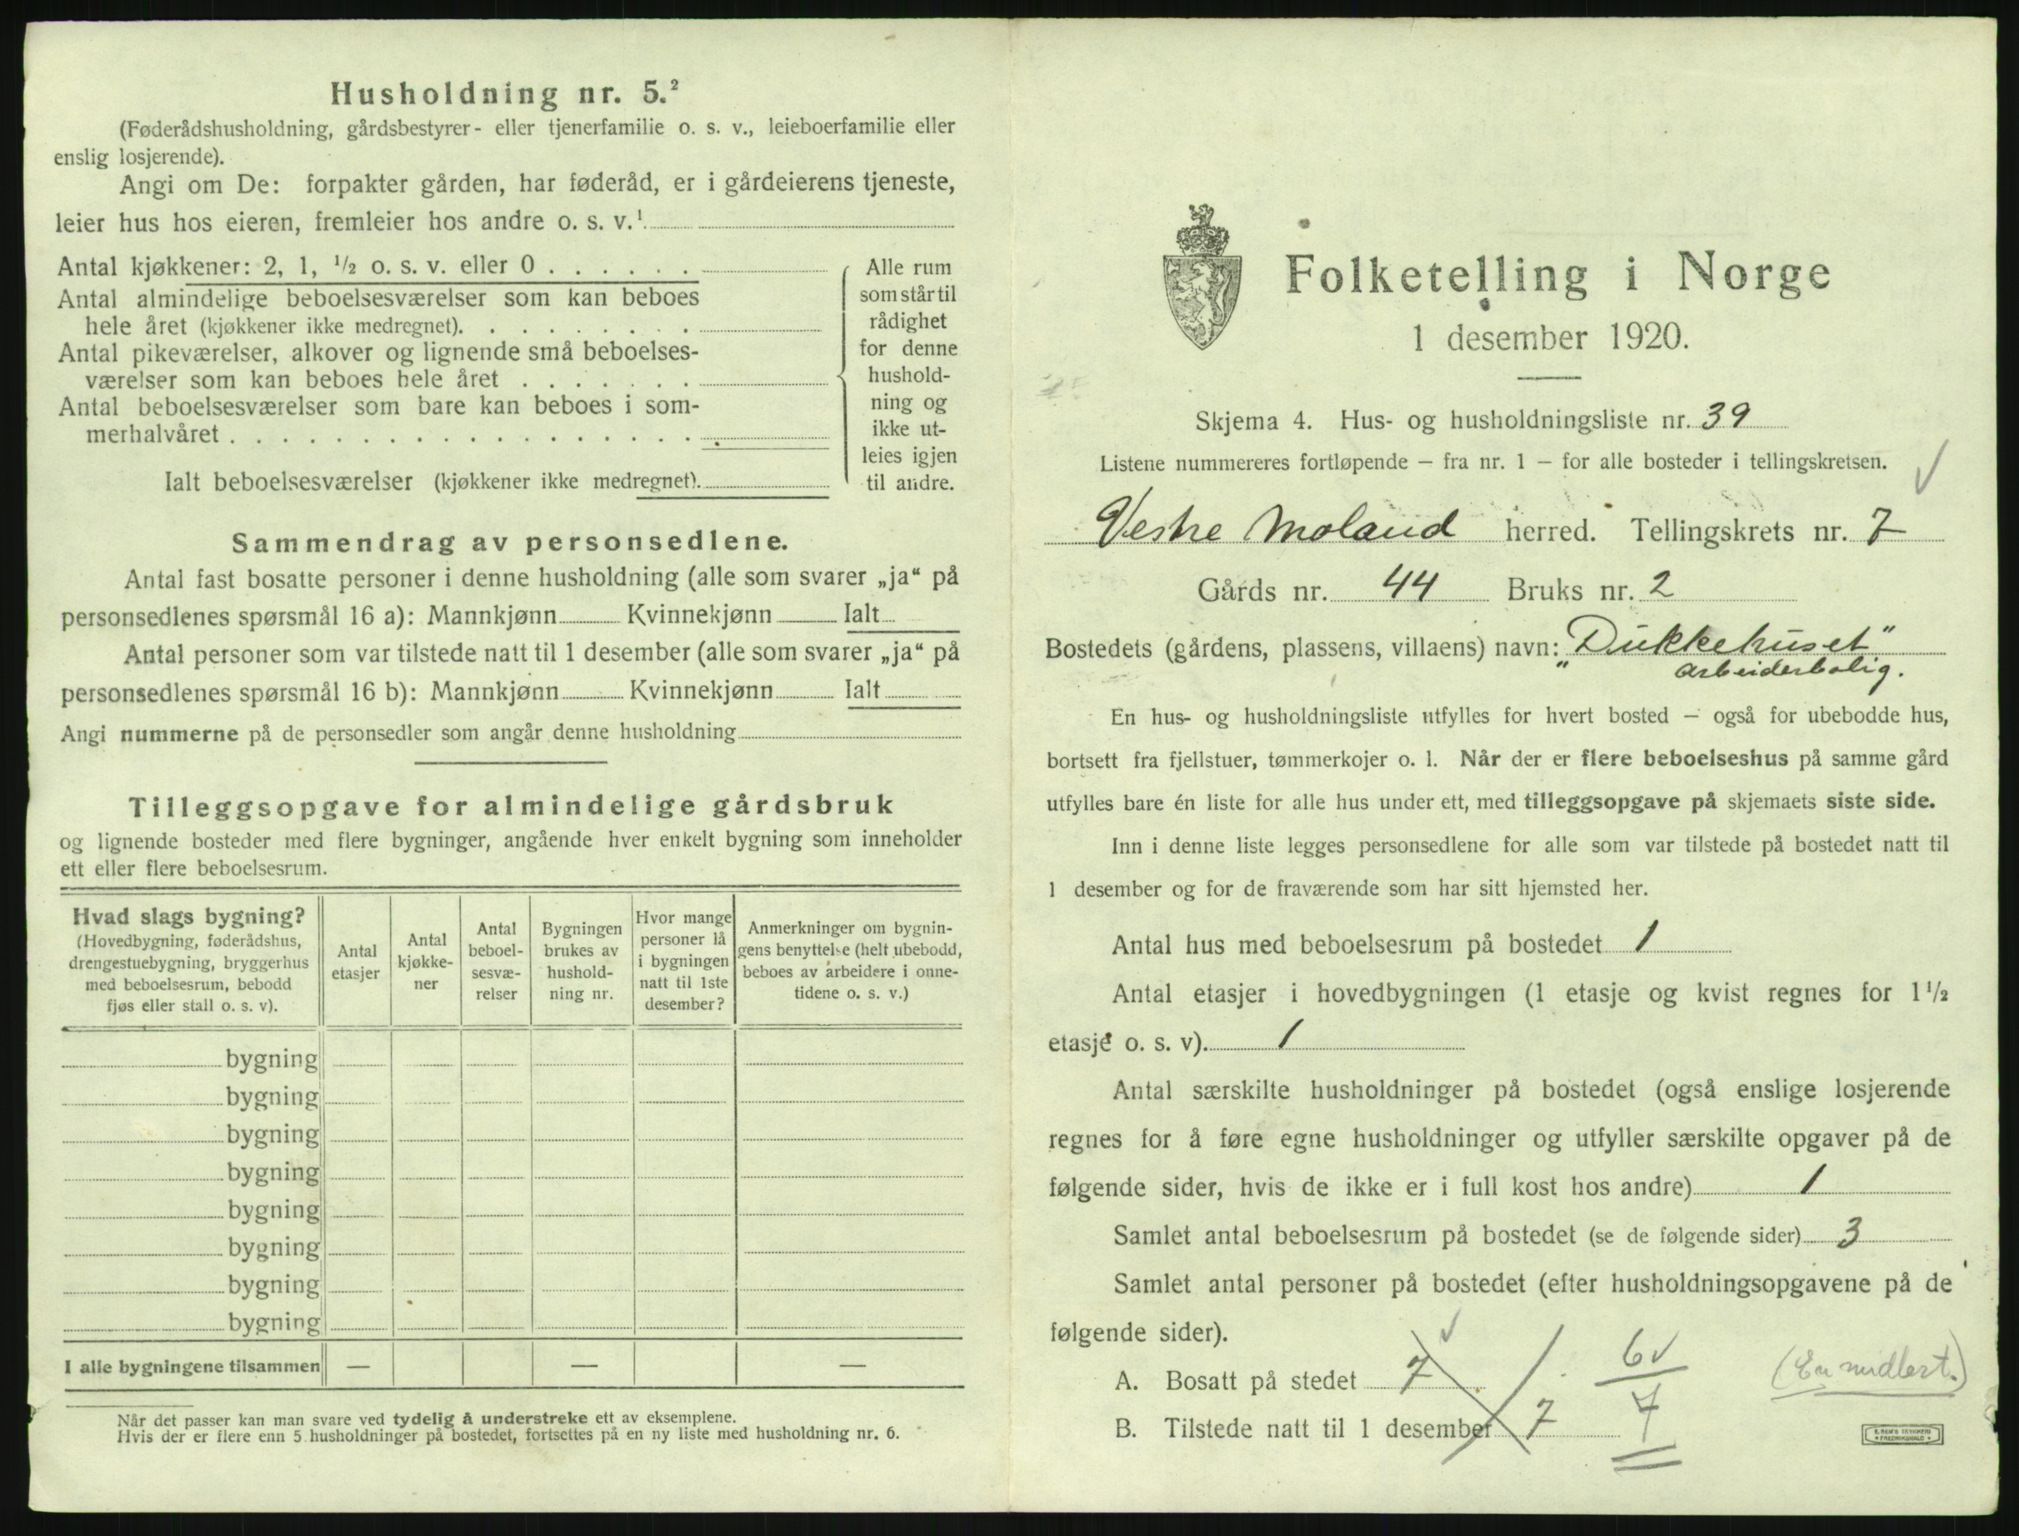 Husholdning nr. 5.²
(Føderådshusholdning, gårdsbestyrer- eller tjenerfamilie o. s. v., leieboerfamilie eller
enslig losjerende).
Angi om De: forpakter gården, har føderåd, er i gårdeierens tjeneste,
leier hus hos eieren, fremleier hos andre o. s. v.¹
Antal kjøkkener: 2, 1, ½ o. s. v. eller 0 . . . . . .
Antal almindelige beboelsesværelser som kan beboes
hele året (kjøkkener ikke medregnet). . . . . . . . .
Antal pikeværelser, alkover og lignende små beboelses-
værelser som kan beboes hele året . . . . . . .
Antal beboelsesværelser som bare kan beboes i som-
merhalvåret . . . . . . . . . . . . . . . . . .
Ialt beboelsesværelser (kjøkkener ikke medregnet).
Alle rum
som står til
rådighet
for denne
hushold-
ning og
ikke ut-
leies igjen
til andre.
Sammendrag av personsedlene.
Antal fast bosatte personer i denne husholdning (alle som svarer „ja“ på
personsedlenes spørsmål 16 a): Mannkjønn Kvinnekjønn Ialt
Antal personer som var tilstede natt til 1 desember (alle som svarer „ja“ på
personsedlenes spørsmål 16 b): Mannkjønn Kvinnekjønn Ialt
Angi nummerne på de personsedler som angår denne husholdning
Tilleggsopgave for almindelige gårdsbruk
og lignende bosteder med flere bygninger, angående hver enkelt bygning som inneholder
ett eller flere beboelsesrum.
Hvad slags bygning?
(Hovedbygning, føderådshus,
drengestuebygning, bryggerhus
med beboelsesrum, bebodd
fjøs eller stall o. s. v).
Antal
etasjer
Antal
kjøkke-
ner
Antal
beboel-
sesvæ-
relser
Bygningen
brukes av
hushold-
ning nr.
Hvor mange
personer lå
i bygningen
natt til 1ste
desember?
Anmerkninger om bygnin-
gens benyttelse (helt ubebodd,
beboes av arbeidere i onne-
tidene o. s. v.)
bygning
bygning
bygning
bygning
bygning
bygning
bygning
bygning
I alle bygningene tilsammen — — —
Når det passer kan man svare ved tydelig å understreke ett av eksemplene.
Hvis der er flere enn 5 husholdninger på bostedet, fortsettes på en ny liste med husholdning nr. 6.
Folketelling i Norge
1 desember 1920.
Skjema 4. Hus- og husholdningsliste nr. 39
Listene nummereres fortløpende — fra nr. 1 — for alle bosteder i tellingskretsen.
Vestre Moland herred. Tellingskrets nr. 7
Gårds nr. 44 Bruks nr. 2
Bostedets (gårdens, plassens, villaens) navn: „Dukkehuset"
Arbeiderbolig.
En hus- og husholdningsliste utfylles for hvert bosted — også for ubebodde hus,
bortsett fra fjellstuer, tømmerkojer o. l. Når der er flere beboelseshus på samme gård
utfylles bare én liste for alle hus under ett, med tilleggsopgave på skjemaets siste side.
Inn i denne liste legges personsedlene for alle som var tilstede på bostedet natt til
1 desember og for de fraværende som har sitt hjemsted her.
Antal hus med beboelsesrum på bostedet 1
Antal etasjer i hovedbygningen (1 etasje og kvist regnes for 1½
etasje o. s. v). 1
Antal særskilte husholdninger på bostedet (også enslige losjerende
regnes for å føre egne husholdninger og utfyller særskilte opgaver på de
følgende sider, hvis de ikke er i full kost hos andre) 1
Samlet antal beboelsesrum på bostedet (se de følgende sider) 3
Samlet antal personer på bostedet (efter husholdningsopgavene på de
følgende sider).
A. Bosatt på stedet 7 6 (En midlert.)
B. Tilstede natt til 1 desember 7 7
E. SEM'S TRYKKERI
FREDRIKSHALD